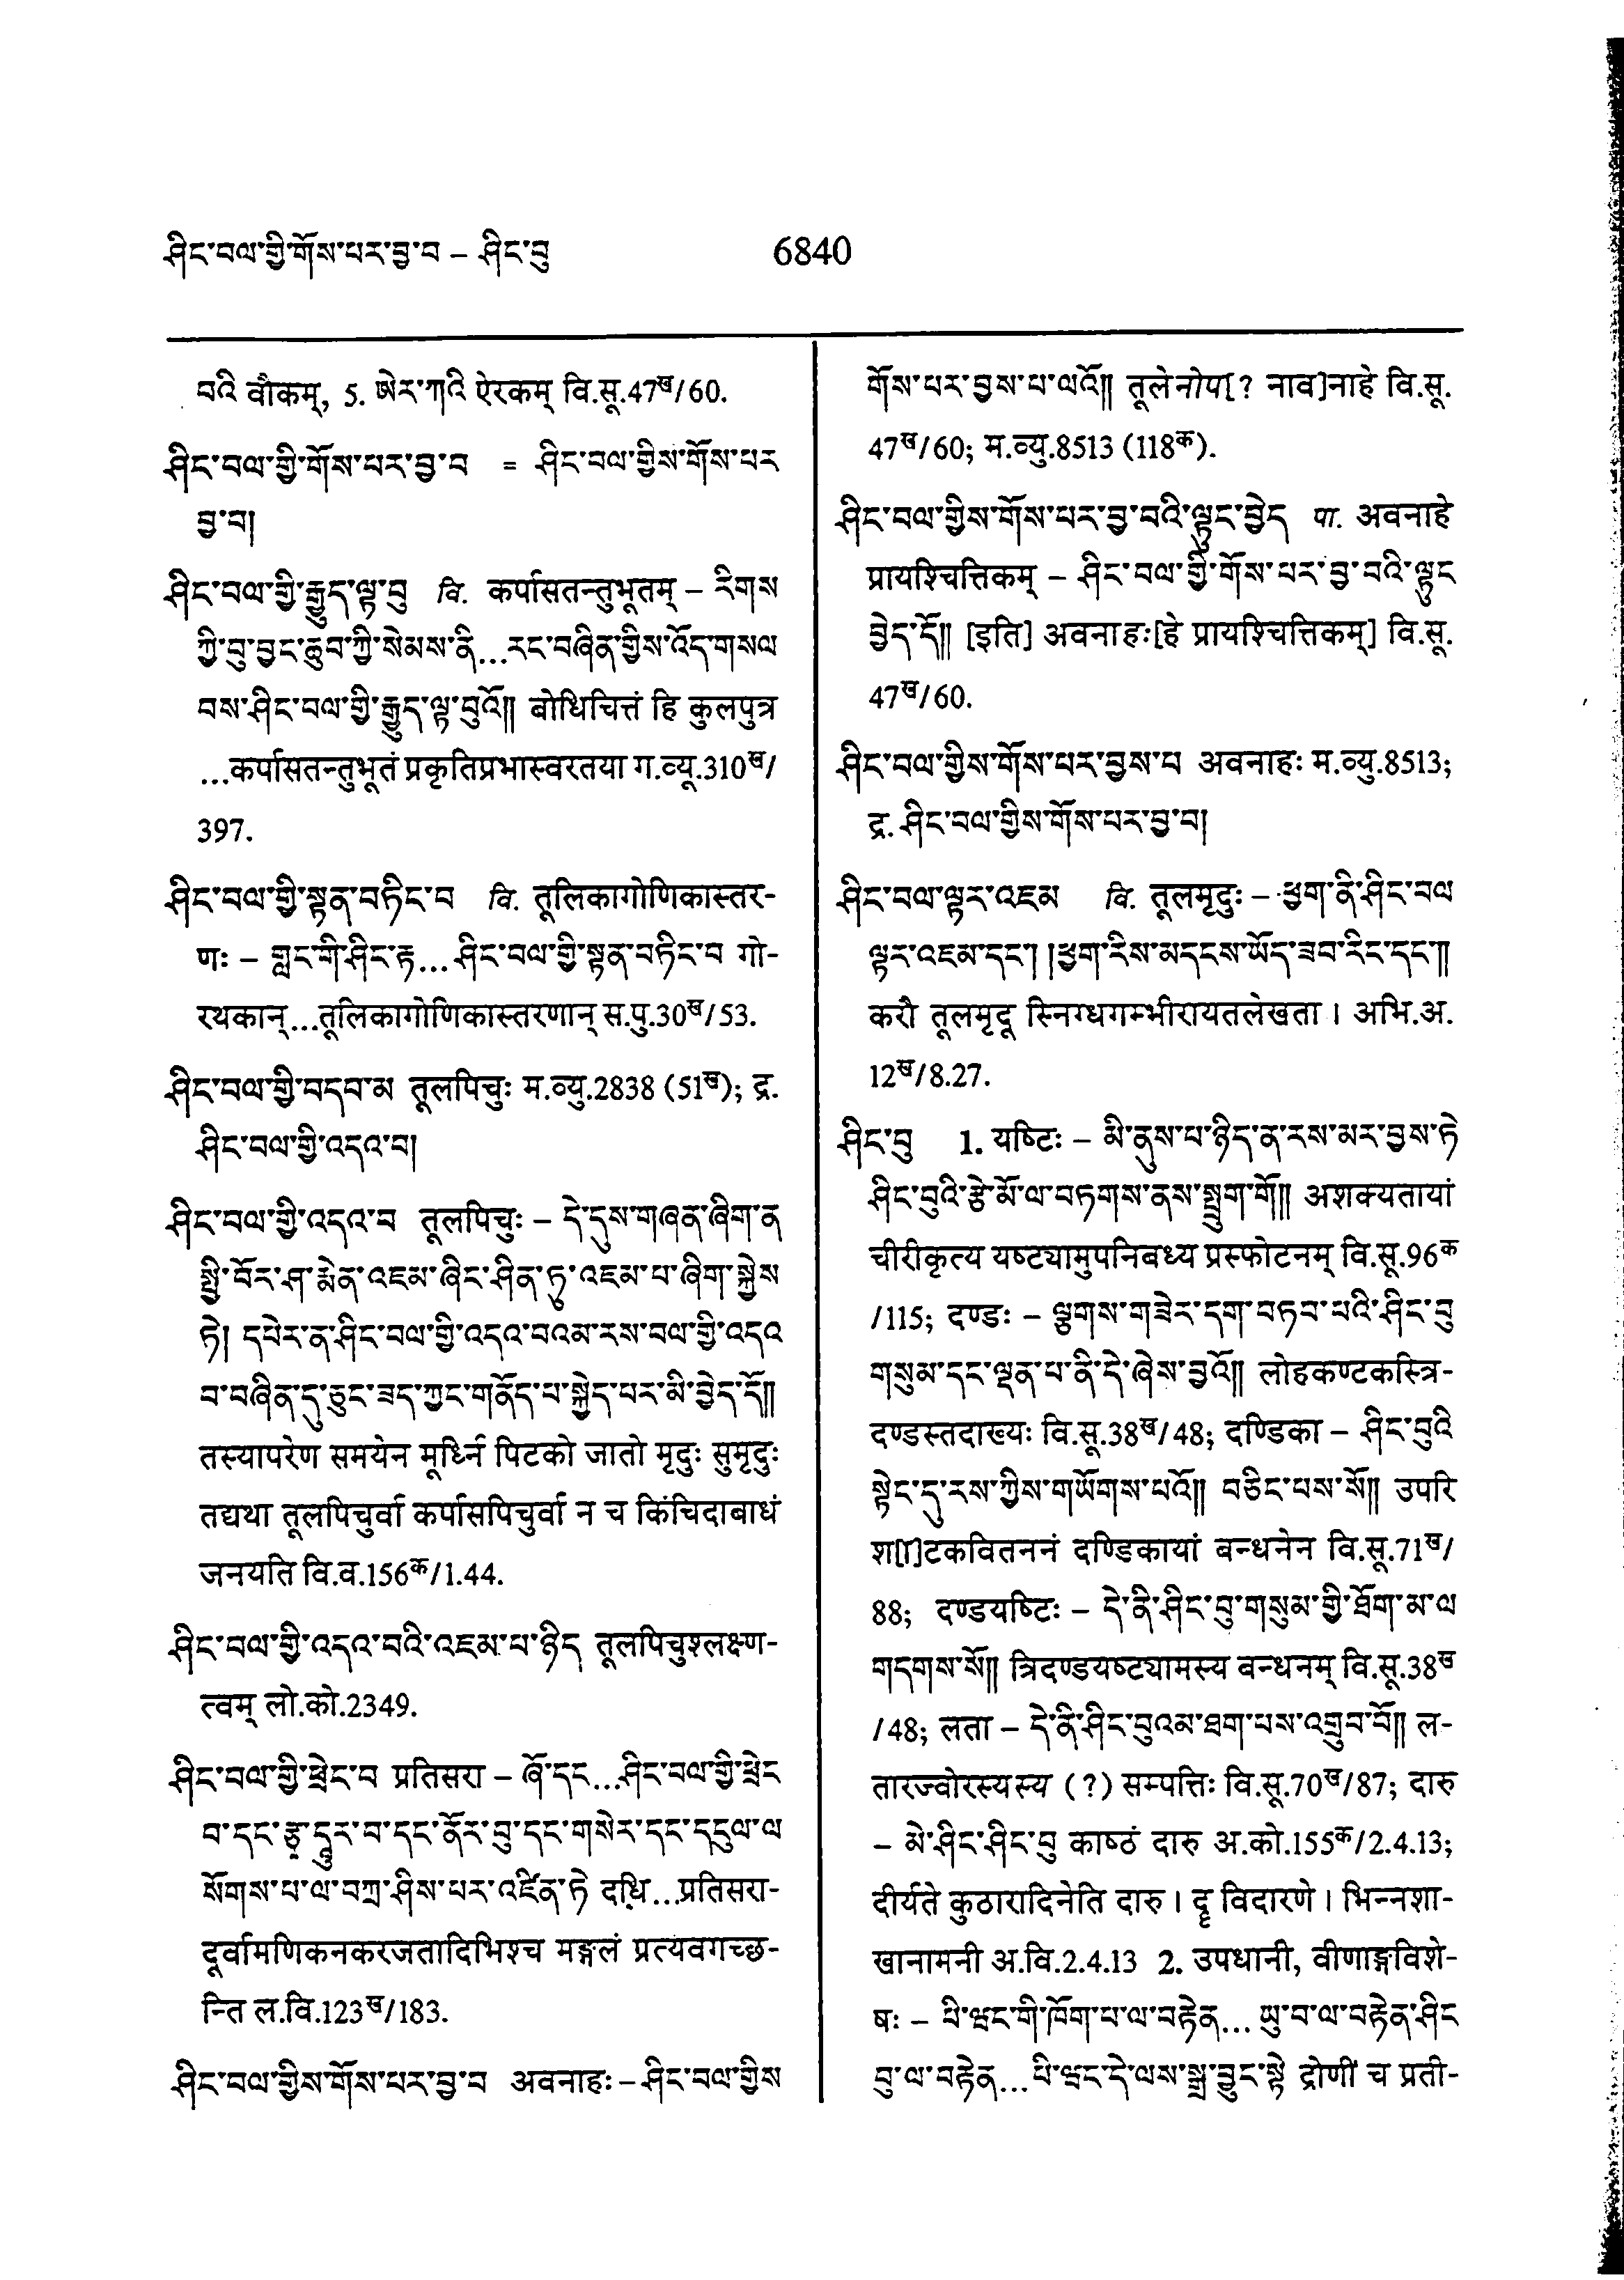 ཤིང་བལ་གྱི་གོས་པར་བྱ་བ – ཤིང་བུ
6840
བའི वौकम्, 5. ཨེར་ཀའི ऐरकम् वि.सू.47ख/60.
ཤིང་བལ་གྱི་གོས་པར་བྱ་བ = ཤིང་བལ་གྱིས་གོས་པར
བྱ་བ།
ཤིང་བལ་གྱི་རྒྱུད་ལྟ་བུ वि. कर्पासतन्तुभूतम् – རིགས
ཀྱི་བུ་བྱང་ཆུབ་ཀྱི་སེམས་ནི...རང་བཞིན་གྱིས་འོད་གསལ
བས་ཤིང་བལ་གྱི་རྒྱུད་ལྟ་བུའོ།། बोधिचित्तं हि कुलपुत्र
...कर्पासतन्तुभूतं प्रकृतिप्रभास्वरतया ग.व्यू.310ख/
397.
ཤིང་བལ་གྱི་སྟན་བཏིང་བ वि. तूलिकागोणिकास्तर-
णः – གླང་གི་ཤིང་རྟ...ཤིང་བལ་གྱི་སྟན་བཏིང་བ गो-
रथकान्...तूलिकागोणिकास्तरणान् स.पु.30ख/53.
ཤིང་བལ་གྱི་བདབ་མ तूलपिचुः म.व्यु.2838 (51ख); द्र.
ཤིང་བལ་གྱི་འདའ་བ།
ཤིང་བལ་གྱི་འདའ་བ तूलपिचुः – དེ་དུས་གཞན་ཞིག་ན
སྤྱི་བོར་ཤ་རྨེན་འཇམ་ཞིང་ཤིན་ཏུ་འཇམ་པ་ཞིག་སྐྱེས
ཏེ། དཔེར་ན་ཤིང་བལ་གྱི་འདའ་བའམ་རས་བལ་གྱི་འདའ
བ་བཞིན་དུ་ཅུང་ཟད་ཀྱང་གནོད་པ་སྐྱེད་པར་མི་བྱེད་དོ།།
तस्यापरेण समयेन मूर्ध्नि पिटको जातो मृदुः सुमृदुः
तद्यथा तूलपिचुर्वा कर्पासपिचुर्वा न च किंचिदाबाधं
जनयति वि.व.156क/1.44.
ཤིང་བལ་གྱི་འདའ་བའི་འཇམ་པ་ཉིད तूलपिचुश्लक्ष्ण-
त्वम् लो.को.2349.
ཤིང་བལ་གྱི་ཕྲེང་བ प्रतिसरा – ཞོ་དང...ཤིང་བལ་གྱི་ཕྲེང
བ་དང་རྩྭ་དཱུར་བ་དང་ནོར་བུ་དང་གསེར་དང་དངུལ་ལ
སོགས་པ་ལ་བཀྲ་ཤིས་པར་འཛིན་ཏེ दधि...प्रतिसरा-
दूर्वामणिकनकरजतादिभिश्च मङ्गलं प्रत्यवगच्छ-
न्ति ल.वि.123ख/183.
ཤིང་བལ་གྱིས་གོས་པར་བྱ་བ अवनाहः – ཤིང་བལ་གྱིས
གོས་པར་བྱས་པ་ལའོ།། तूलेनोप[? नाव]नाहे वि.सू.
47ख/60; म.व्यु.8513 (118क).
ཤིང་བལ་གྱིས་གོས་པར་བྱ་བའི་ལྟུང་བྱེད पा. अवनाहे
प्रायश्चित्तिकम् – ཤིང་བལ་གྱི་གོས་པར་བྱ་བའི་ལྟུང
བྱེད་དོ།། [इति] अवनाहः[हे प्रायश्चित्तिकम्] वि.सू.
47ख/60.
ཤིང་བལ་གྱིས་གོས་པར་བྱས་པ अवनाहः म.व्यु.8513;
द्र. ཤིང་བལ་གྱིས་གོས་པར་བྱ་བ།
ཤིང་བལ་ལྟར་འཇམ वि. तूलमृदुः – ཕྱག་ནི་ཤིང་བལ
ལྟར་འཇམ་དང་། །ཕྱག་རིས་མདངས་ཡོད་ཟབ་རིང་དང་།།
करौ तूलमृदू स्निग्धगम्भीरायतलेखता । अभि.अ.
12ख/8.27.
ཤིང་བུ 1. यष्टिः – མི་ནུས་པ་ཉིད་ན་རས་མར་བྱས་ཏེ
ཤིང་བུའི་རྩེ་མོ་ལ་བཏགས་ནས་སྤྲུག་གོ།། अशक्यतायां
चीरीकृत्य यष्ट्यामुपनिबध्य प्रस्फोटनम् वि.सू.96क
/115; दण्डः – ལྕགས་གཟེར་དག་བཏབ་པའི་ཤིང་བུ
གསུམ་དང་ལྡན་པ་ནི་དེ་ཞེས་བྱའོ།། लोहकण्टकस्त्रि-
दण्डस्तदाख्यः वि.सू.38ख/48; दण्डिका – ཤིང་བུའི
སྟེང་དུ་རས་ཀྱིས་གཡོགས་པའོ།། བཅིང་པས་སོ།། उपरि
श[ा]टकवितननं दण्डिकायां बन्धनेन वि.सू.71ख/
88; दण्डयष्टिः – དེ་ནི་ཤིང་བུ་གསུམ་གྱི་ཐོག་མ་ལ
གདགས་སོ།། त्रिदण्डयष्ट्यामस्य बन्धनम् वि.सू.38ख
/48; लता – དེ་ནི་ཤིང་བུའམ་ཐག་པས་འགྲུབ་བོ།། ल-
तारज्वोरस्यस्य (?) सम्पत्तिः वि.सू.70ख/87; दारु
– མེ་ཤིང་ཤིང་བུ काष्ठं दारु अ.को.155क/2.4.13;
दीर्यते कुठारादिनेति दारु । दॄ विदारणे । भिन्नशा-
खानामनी अ.वि.2.4.13 2. उपधानी, वीणाङ्गविशे-
षः – པི་ཝང་གི་ཁོག་པ་ལ་བརྟེན... ཡུ་བ་ལ་བརྟེན་ཤིང
བུ་ལ་བརྟེན...པི་ཝང་དེ་ལས་སྒྲ་བྱུང་སྟེ द्रोणीं च प्रती-